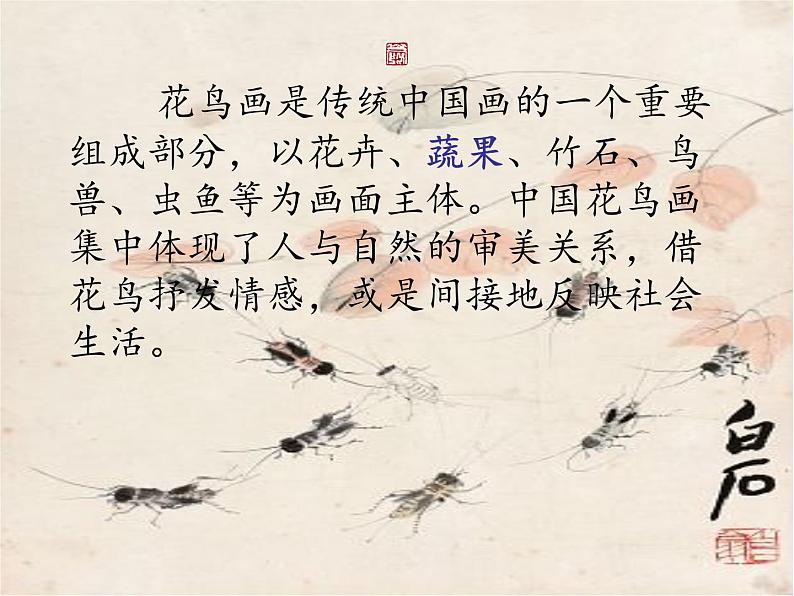 花鸟画是传统中国画的一个重要
组成部分，以花卉、蔬果、竹石、鸟
兽、虫鱼等为画面主体。中国花鸟画
集中体现了人与自然的审美关系，借
花鸟抒发情感，或是间接地反映社会
生活。
白石